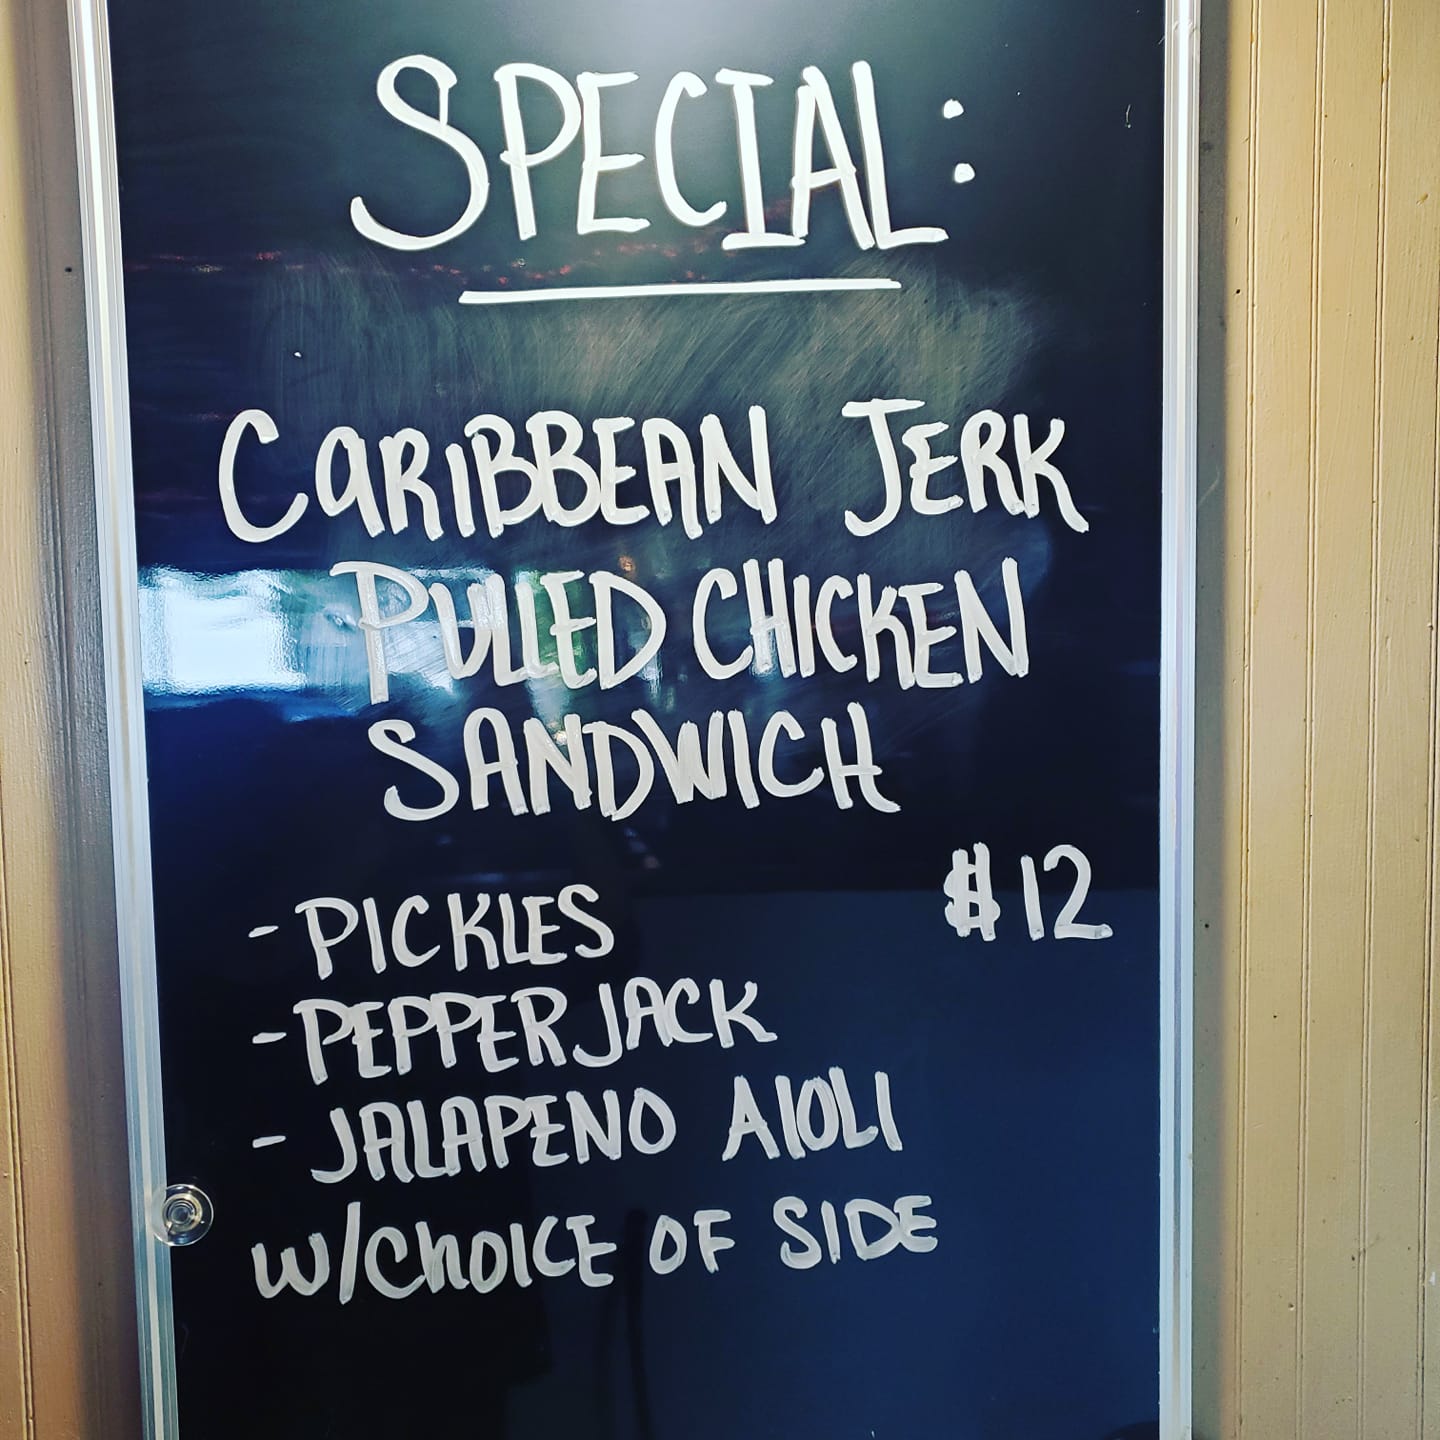 SPECIAL:
CARIBBEAN JERK
PULLED CHICKEN
SANDWICH
$12
- PICKLES
- PEPPER JACK
- JALAPENO AIOLI
W/CHOICE OF SIDE